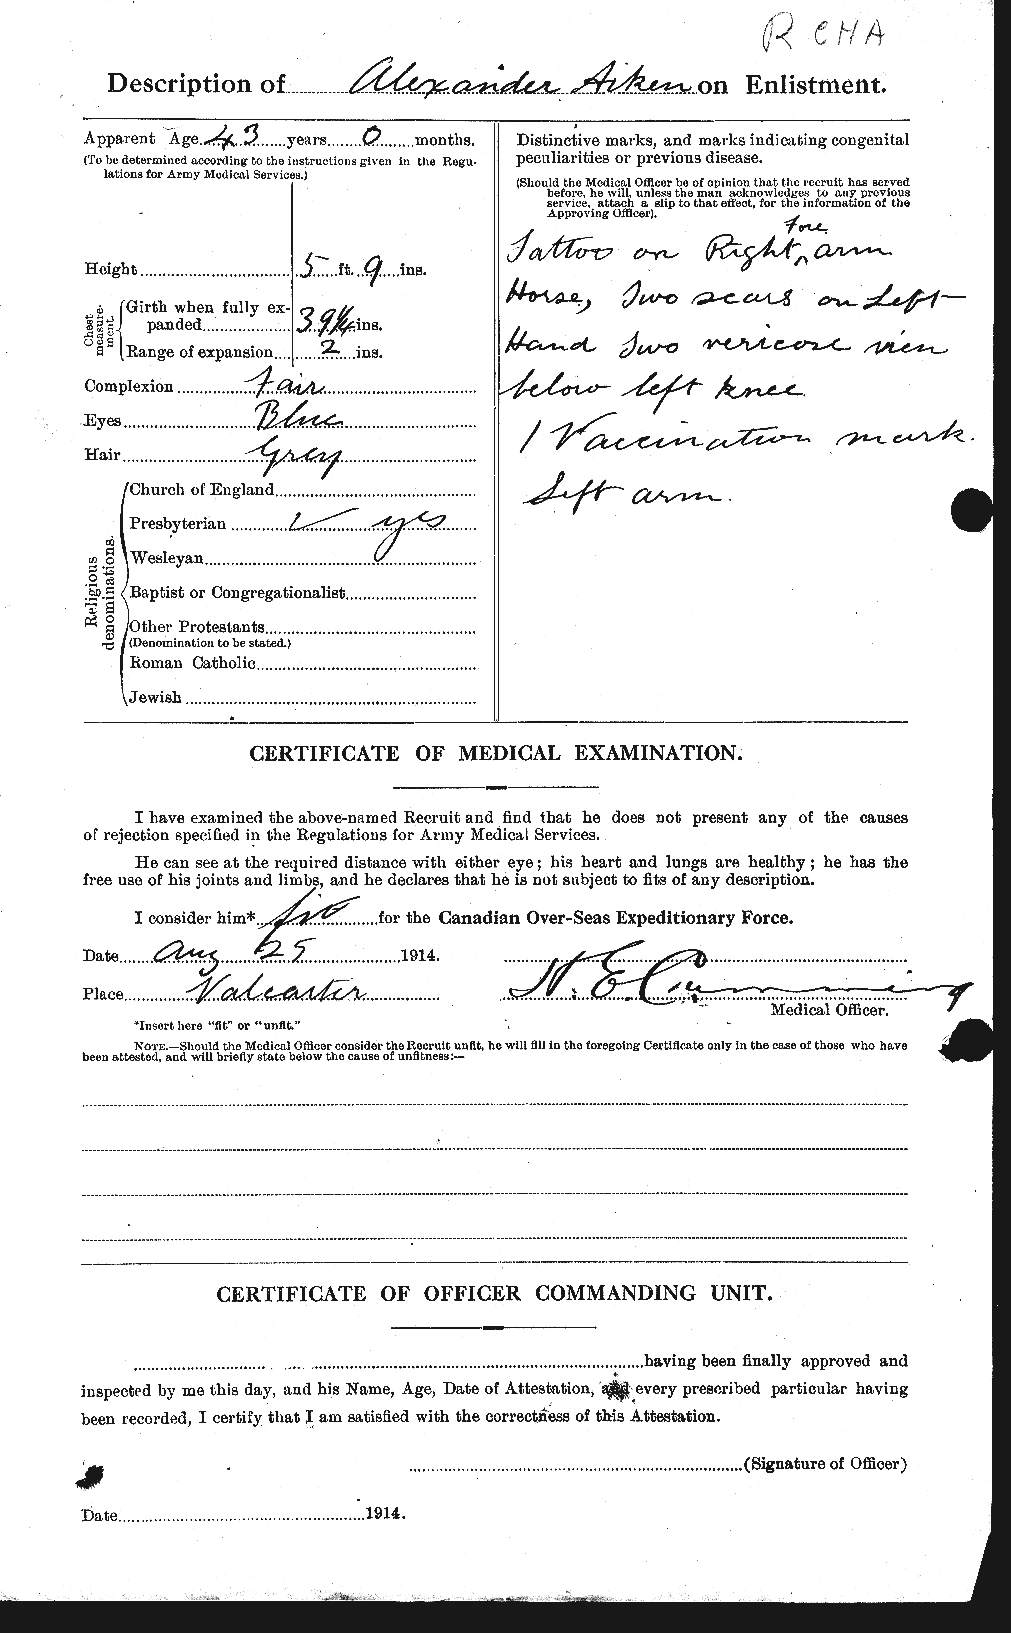 R CHA
Description of Alexander Aiken on Enlistment.
Apparent Age 43 years 0 months.
(To be determined according to the instructions given in the Regu-
lations for Army Medical Services.)
Height 5 ft. 9 ins.
Chest measure-
ment.
Girth when fully ex-
panded 39 1/4 ins.
Range of expansion 2 ins.
Complexion Fair
Eyes Blue
Hair Grey
Religious
denominations.
Church of England
Presbyterian ✓ yes
Wesleyan
Baptist or Congregationalist
Other Protestants
(Denomination to be stated.)
Roman Catholic
Jewish
Distinctive marks, and marks indicating congenital
peculiarities or previous disease.
(Should the Medical Officer be of opinion that the recruit has served
before, he will, unless the man acknowledges to any previous
service, attach a slip to that effect, for the information of the
Approving Officer).
Tattoo on Right ^ fore arm
Horse, Two scars on Left
Hand Two vericose vien
below left knee
1 Vaccination mark.
Left arm.
CERTIFICATE OF MEDICAL EXAMINATION.
I have examined the above-named Recruit and find that he does not present any of the causes
of rejection specified in the Regulations for Army Medical Services.
He can see at the required distance with either eye; his heart and lungs are healthy; he has the
free use of his joints and limbs, and he declares that he is not subject to fits of any description.
I consider him* fit for the Canadian Over-Seas Expeditionary Force.
Date Aug 25 1914.
Place Valcartier
H. E. Cumming
Medical Officer.
*Insert here "fit" or "unfit."
NOTE.—Should the Medical Officer consider the Recruit unfit, he will fill in the foregoing Certificate only in the case of those who have
been attested, and will briefly state below the cause of unfitness:—
CERTIFICATE OF OFFICER COMMANDING UNIT.
having been finally approved and
inspected by me this day, and his Name, Age, Date of Attestation, and every prescribed particular having
been recorded, I certify that I am satisfied with the correctness of this Attestation.
(Signature of Officer)
Date 1914.